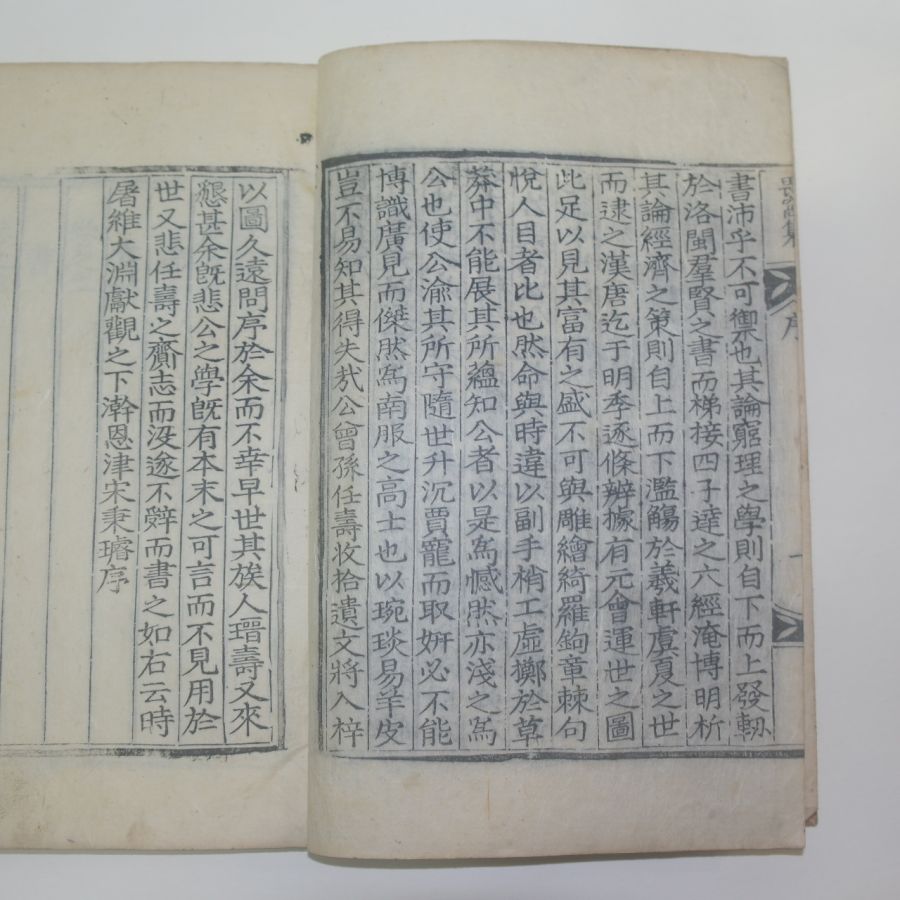 書沛乎不可禦也其論窮理之學則自下而上發軔
於洛閩羣賢之書而梯接四子達之六經淹博明析
其論經濟之策則自上而下濫觴於羲軒虞夏之世
而逮之漢唐迄于明季逐條辨據有元會運世之圖
此足以見其富有之盛不可與雕繪綺羅鉤章棘句
悅人目者比也然命與時違以副手梢工虛擲於草
莽中不能展其所蘊知公者以是爲憾然亦淺之爲
公也使公渝其所守隨世升沉賈寵而取姸必不能
博識廣見而傑然爲南服之高士也以琬琰易羊皮
豈不易知其得失哉公曾孫任壽收拾遺文將入梓
以圖久遠問序於余而不幸早世其族人瑨壽又來
懇甚余旣悲公之學旣有本末之可言而不見用於
世又悲任壽之齎志而沒遂不辭而書之如右云時
屠維大淵獻觀之下澣恩津宋秉璿序
集
序
一